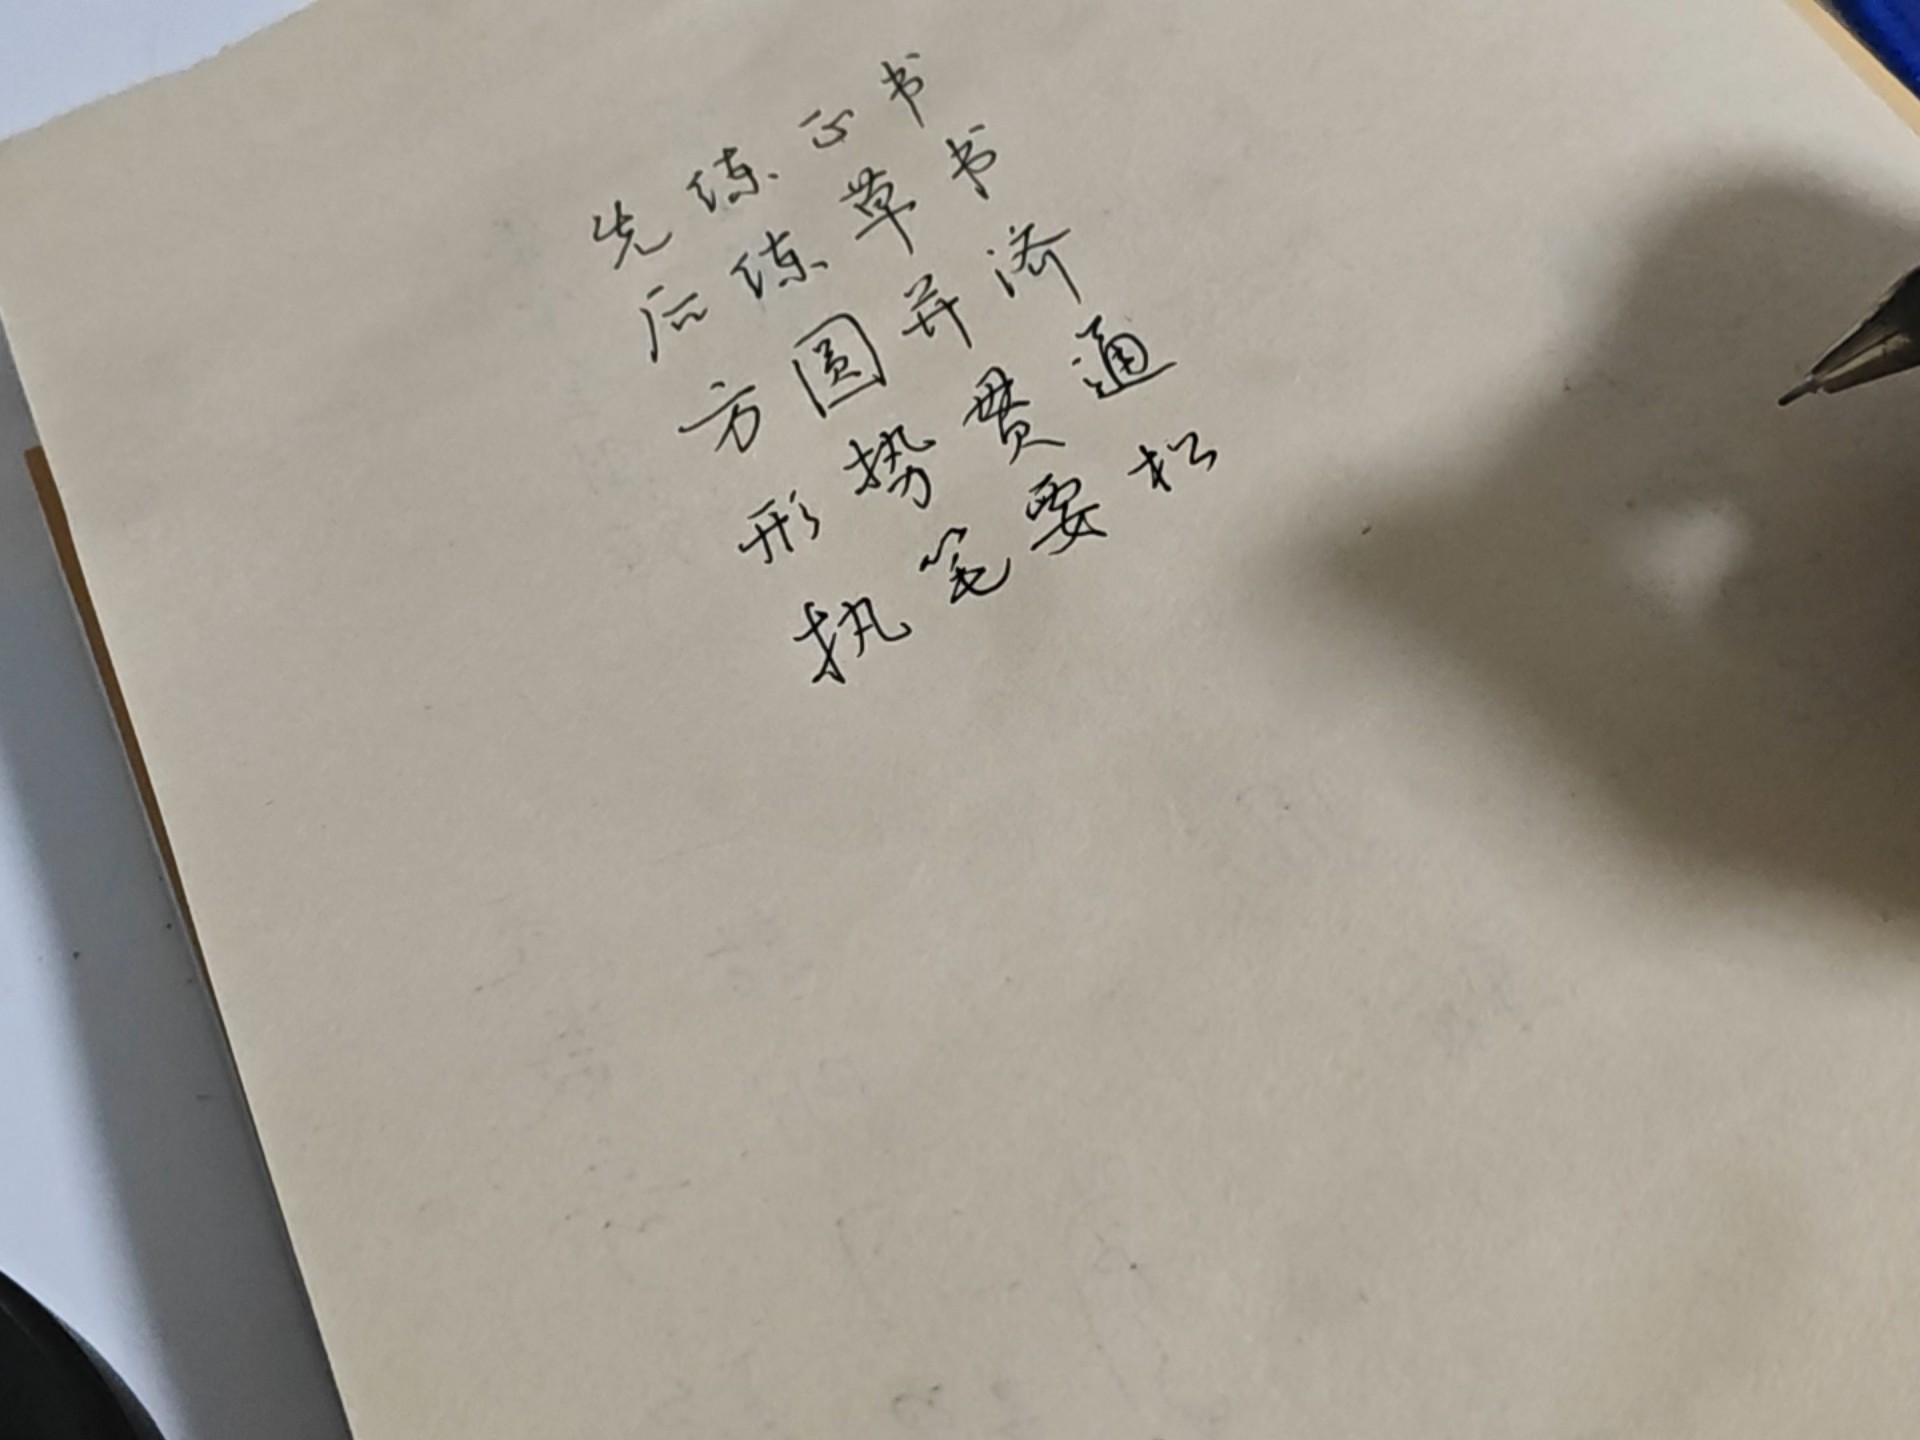 先练正书
后练草书
方圆并济
形势贯通
执笔要松